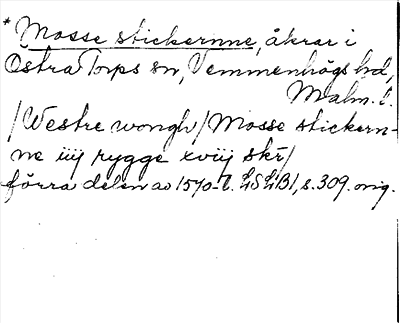 * Mosse stickernne, åkrar i
Östra Torps sn, Vemmenhögs hd,
Malm. l.
/Westre wongh/Mosse stickern-
ne iiij rygge xviij skr/
förra delen av 1570-t. LSLB1, s. 309. orig.